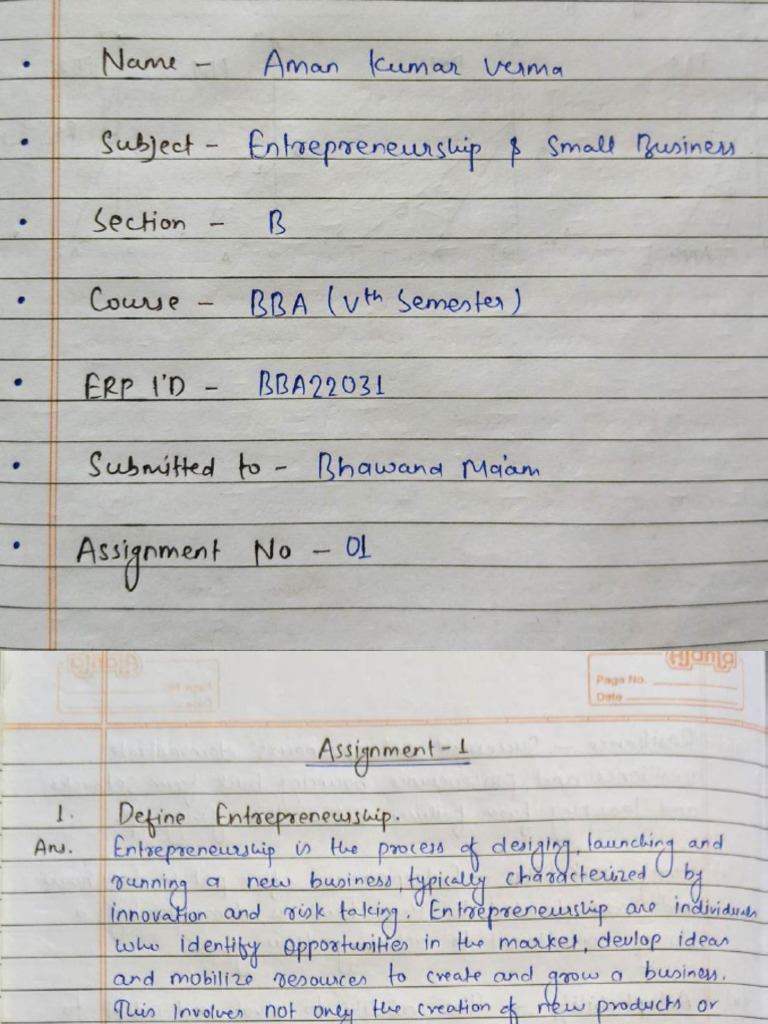 • Name - Aman Kumar Verma
• Subject - Entrepreneurship & Small Business
• Section - B
• Course - BBA (Vth Semester)
• ERP I'D - BBA22031
• Submitted to - Bhawana Ma'am
• Assignment No - 01
Page No.
Date
Assignment - 1
1. Define Entrepreneuship.
Ans. Entrepreneuship is the process of desiging, launching and
running a new business, typically characterized by
innovation and risk taking. Entrepreneuship are individuals
who identify opportunities in the market, devlop ideas
and mobilize resources to create and grow a business.
This involves not only the creation of new products or